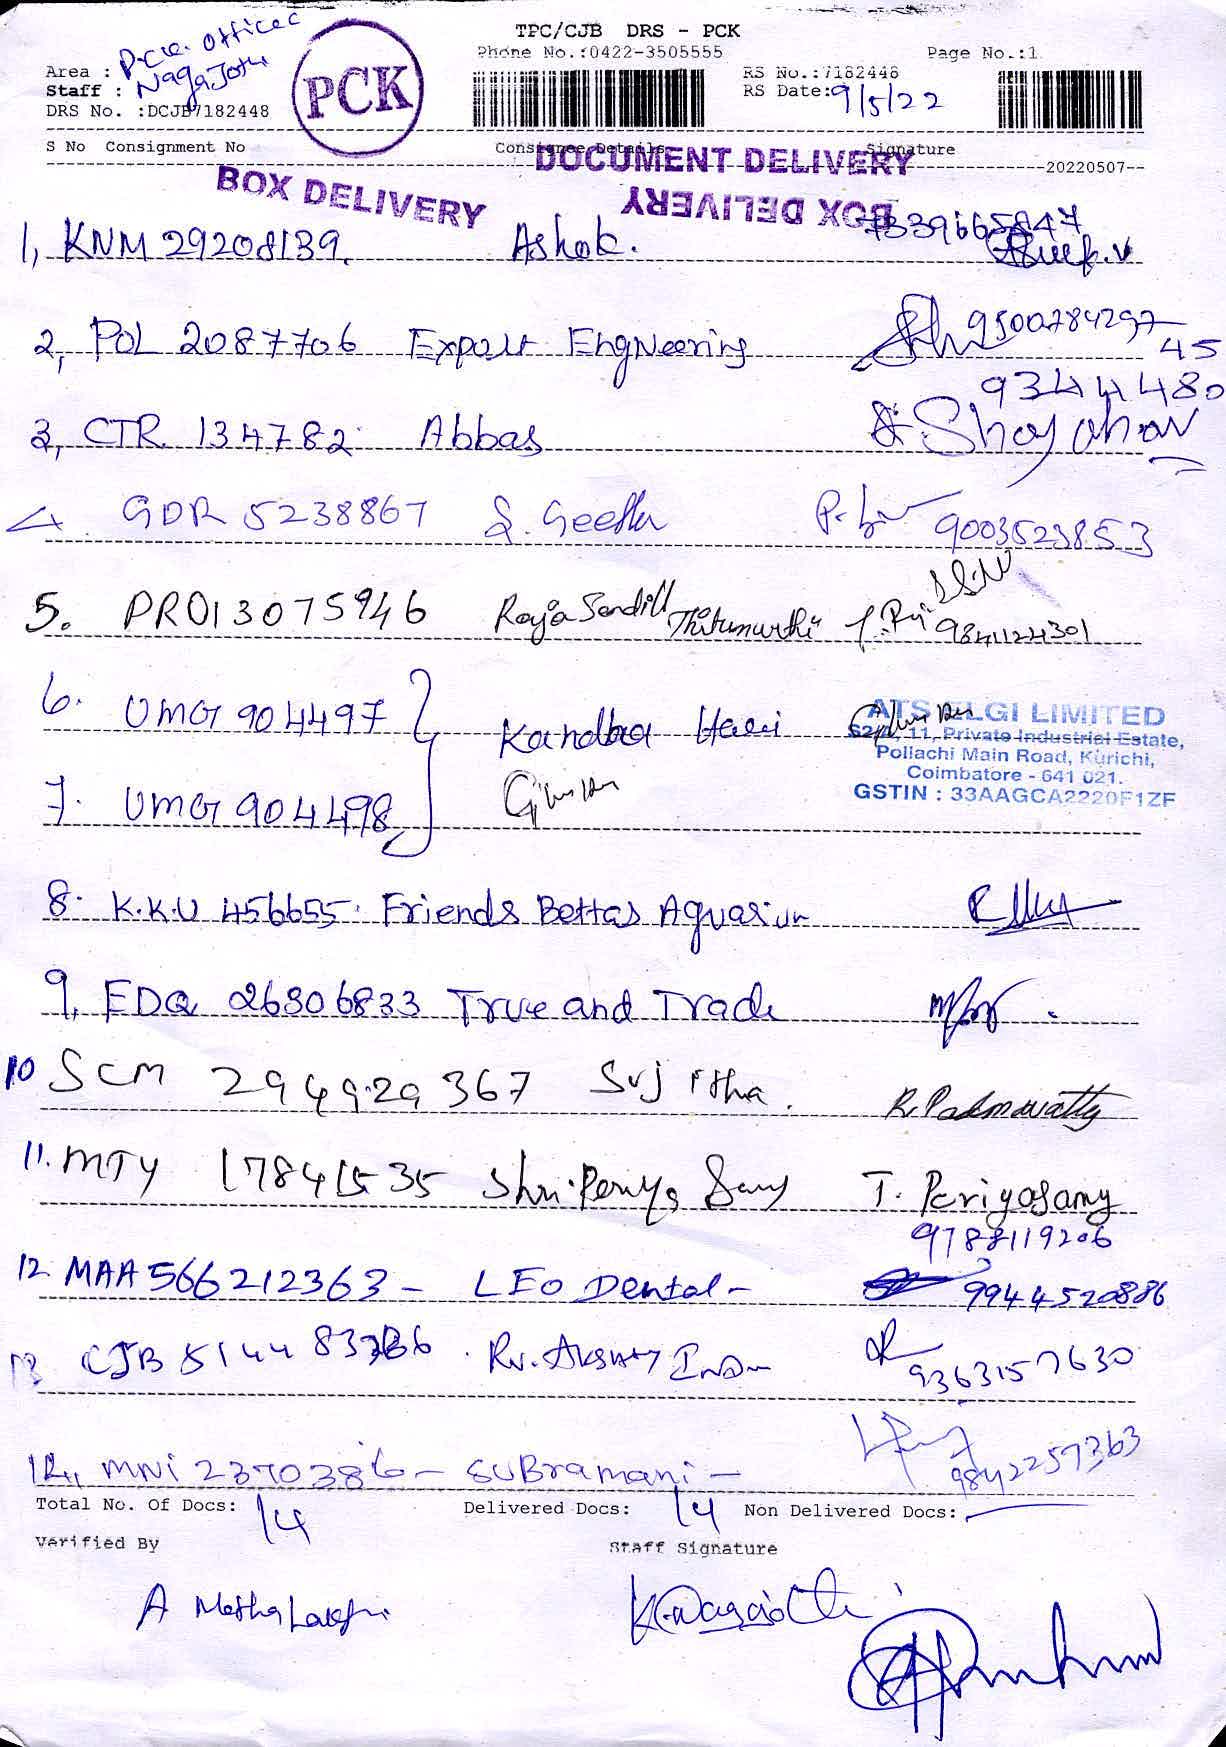 TPC/CJB DRS - PCK
Phone No.:0422-3505555
Page No.:1
Area : P.C.K. Office
Staff : Naga Jothi
DRS No. :DCJB7182448
PCK
RS No.:7182448
RS Date: 9/5/22
S No Consignment No Consignee Details Signature
20220507
DOCUMENT DELIVERY
BOX DELIVERY
BOX DELIVERY
1, KNM 29208139 Ashok. 7339665847
2, POL 2087706 Expert EngNeering 9500284297
9344480 45
3, CTR 134782 Abbas
4 GDR 5238867 S. Geetha 9003523853
5. PRO13075946 Raja Sendill Thirumurthi 9841124301
6. UMG 904497 Kandha Hari
7. UMG 904498
ATS ELGI LIMITED
11, Private Industrial Estate,
Pollachi Main Road, Kurichi,
Coimbatore - 641 021.
GSTIN : 33AAGCA2220F1ZF
8. K.K.U 456655. Friends Bettas Aquarium
9, EDQ 26306833 True and Trade
10 SCM 294929367 Sujitha. R. Padmavathy
11. MTY 17841535 Shri. Periya Samy T. Periyasamy
9788119206
12 MAA 566212363 - LEO Dental - 99444520886
13 CJB 5144 83286 . Rv. 9363157630
14, MNI 2370386 - SUBramani - 9842257363
Total No. Of Docs: 14 Delivered Docs: 14 Non Delivered Docs: —
Verified By Staff Signature